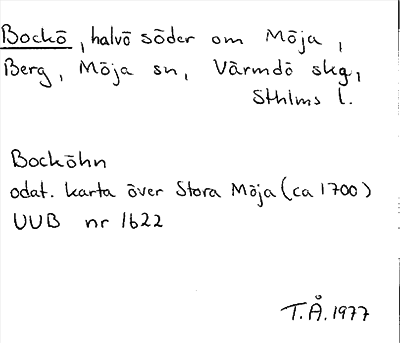 Bockö, halvö söder om Möja,
Berg, Möja sn, Värmdö skg,
Sthlms l.
Bocköhn
odat. karta över Stora Möja (ca 1700)
UUB nr 1622
T.Å. 1977